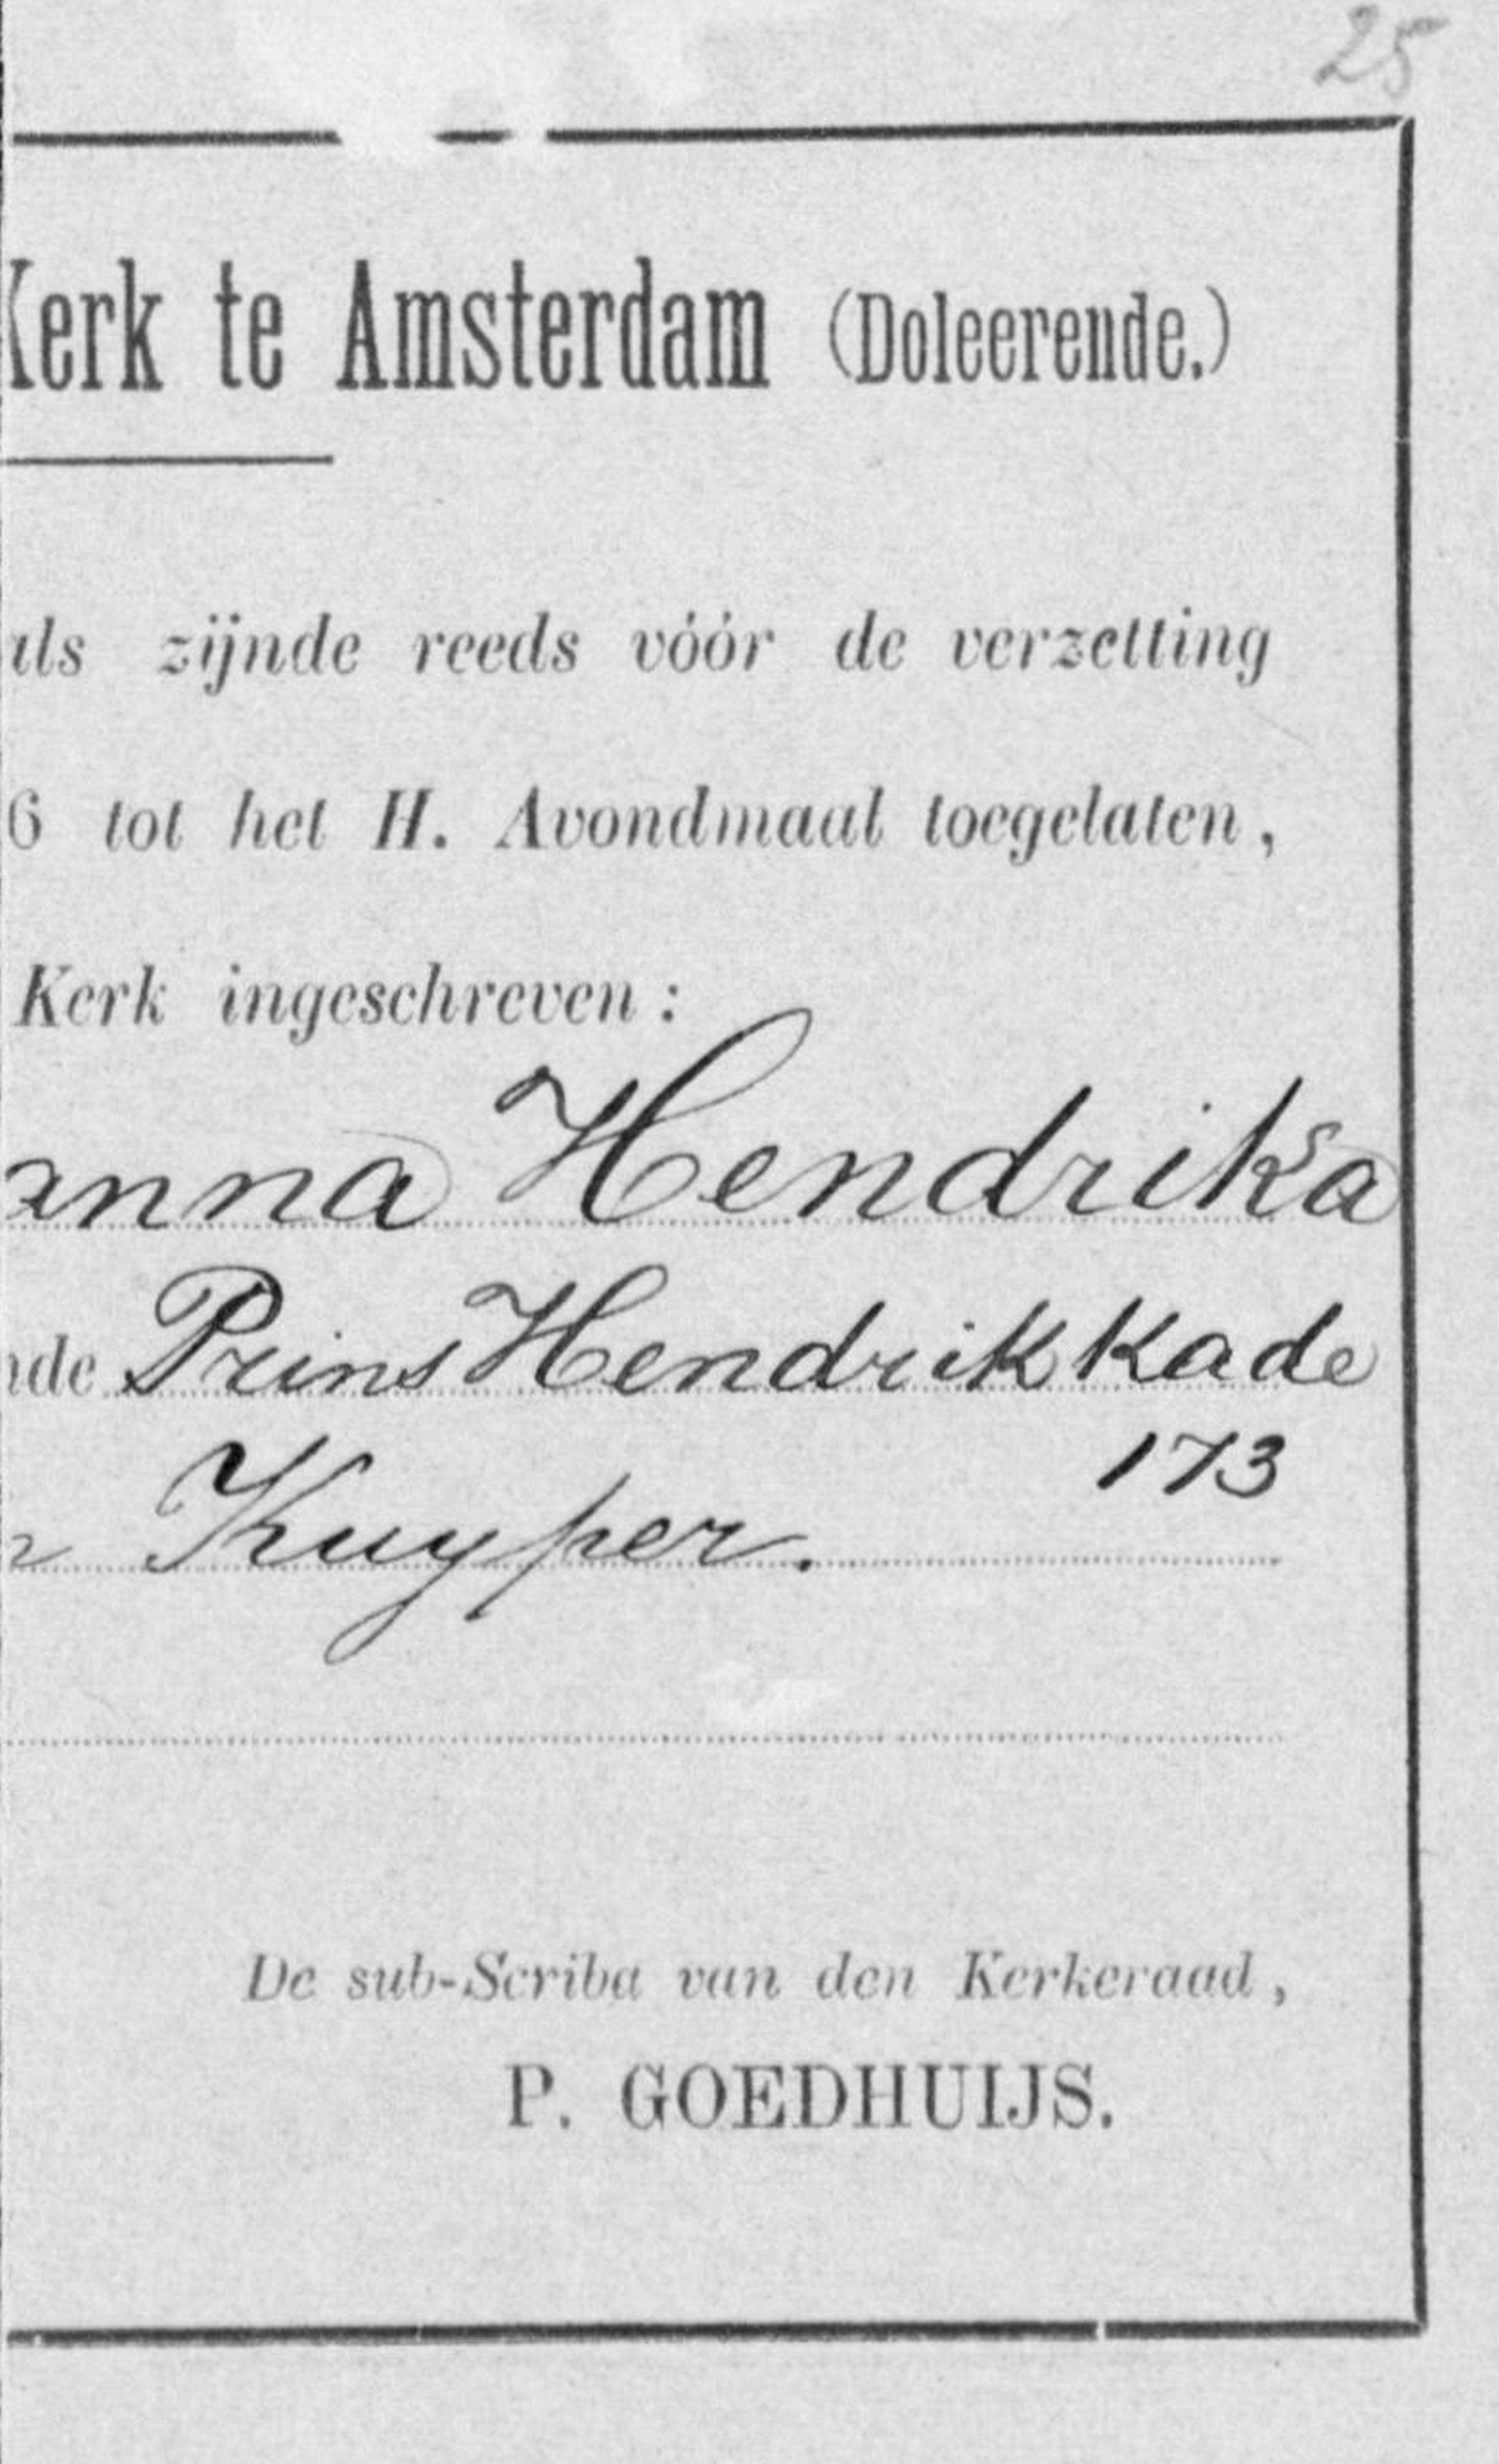 25
Kerk te Amsterdam (Doleerende.)
als zijnde reeds vóór de verzetting
6 tot het H. Avondmaal toegelaten,
Kerk ingeschreven:
anna Hendrika
de Prins Hendrik Kade
173
Kuyper.
De sub-Scriba van den Kerkeraad,
P. GOEDHUIJS.